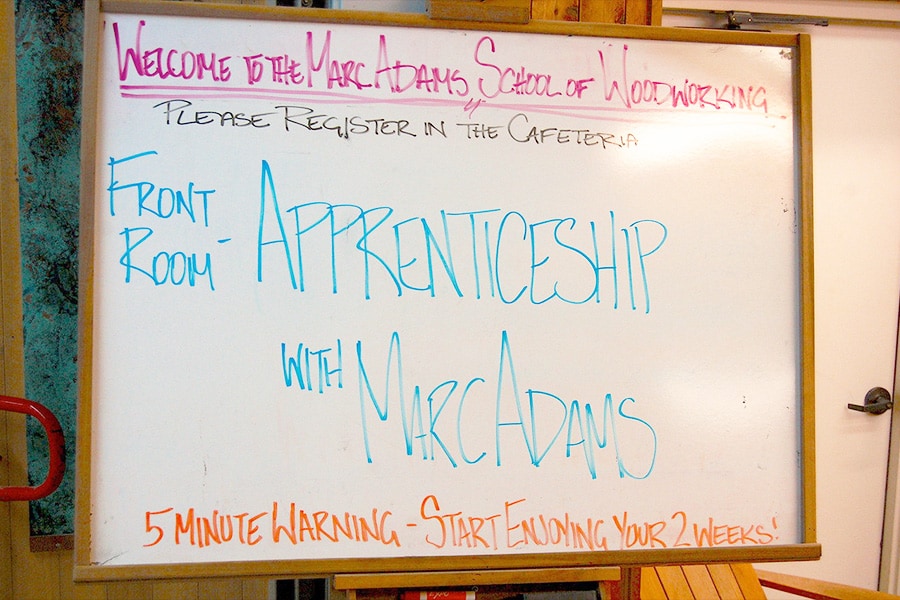 WELCOME TO THE MARC ADAMS SCHOOL OF WOODWORKING
PLEASE REGISTER IN THE CAFETERIA
FRONT
ROOM - APPRENTICESHIP
WITH MARC ADAMS
5 MINUTE WARNING - START ENJOYING YOUR 2 WEEKS!